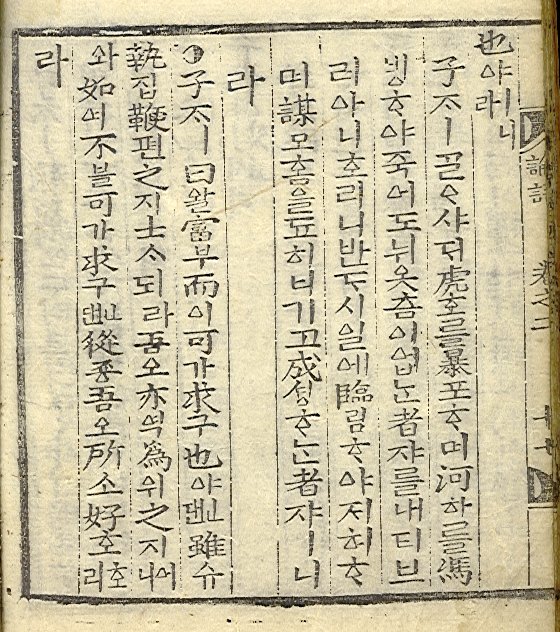 也야ㅣ니라
子ᄌᆞㅣᄀᆞᆯᄋᆞ샤ᄃᆡ虎호를暴포ᄒᆞ며河하를馮
빙ᄒᆞ야죽어도뉘웃츰이업ᄂᆞᆫ者쟈를내더브
러아니호리니반ᄃᆞ시일에臨림ᄒᆞ야저허ᄒᆞ
며謀모홈을됴히너기고成셩ᄒᆞᄂᆞᆫ者쟈ㅣ니
라
○子ᄌᆞㅣ曰왈富부而이可가求구也야ㅣᆫ댄雖슈
執집鞭편之지士ᄉᆞㅣ라도吾오亦역爲위之지어니
와如여不불可가求구ㅣᆫ댄從죵吾오所소好호호리
라